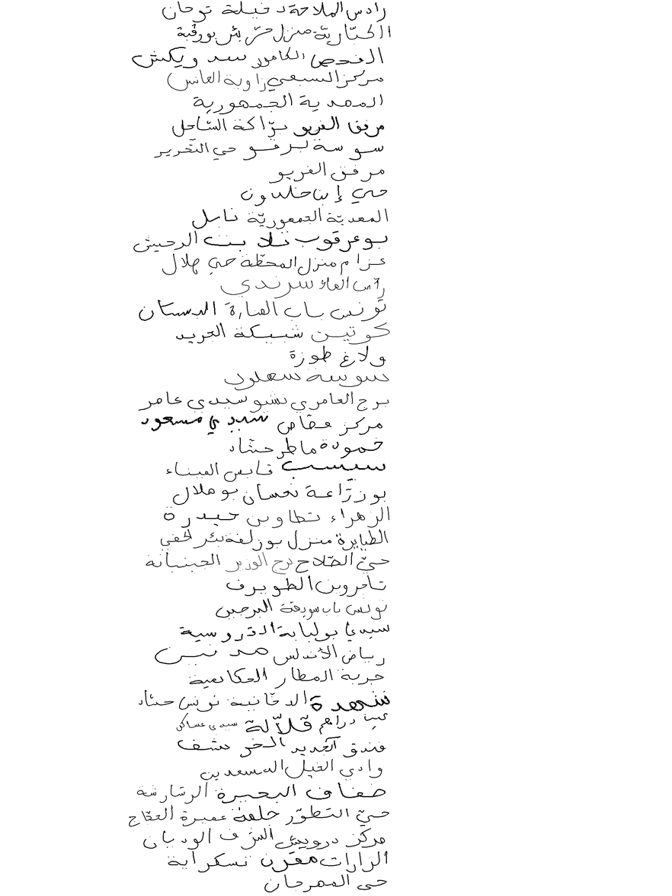 رادس الملاحة دخيلة توجان
الخبّارية منزل حرّ بئر بورقبة
الفحص الكامور سد ويكش
مركز السبعي زاوية العانس
المهدية الجمهورية
مرفق الفريو برّاكة السّاحل
سوسة برقو حي التّحرير
مرفق الفريو
حي إبن خلدون
المهديّة الجمهوريّة نابل
بوعرقوب تلابت الرحيش
عزام منزل المحطّة حي هلال
رأس الماء سرندي
تونس باب المنارة البستان
كوتين شبيكة الجريد
ولاغ طوزة
سوسة سهلول
برج العامري نشو سيدي عامر
مركز عقاص سيدي مسعود
حمودة ماطر حشاد
سبيبت قابس الميناء
بوزرّاعة نحسان بوملال
الزهراء تطاوين حيدرة
الطبابرة منزل بوزلفة بئر لحفي
حيّ الفلاح برج الوزير الحبنيانة
تاجروين الطويرف
تونس باب سويقة البرجين
سيدي بولبابة القروسية
رياض الأندلس مدنين
جربة المطار العكايمية
شهدة الدخّانية تونس حشاد
عين دراهم قلاّلة سيدي عساكر
فندق الجديد الخرشف
وادي الليل المسعدين
ضفاف البحيرة الرشارشة
حيّ التطوّر حلمة عميرة الحجّاج
مركز درويش الشرف الوديان
الزارات مقرن نسكراية
حي المهرجان